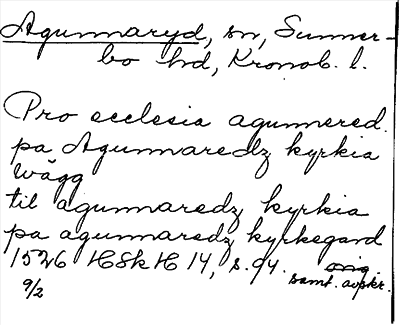 Agunnaryd, sn, Sunner-
bo hd, Kronob. l.
Pro ecclesia agunnered.
pa Agunnaredz kyrkia
wägg
til agunnaredz kyrkia
pa agunnaredz kyrkegard
1526 HSkH 14, s. 94. orig.
samt. avskr.
9/2